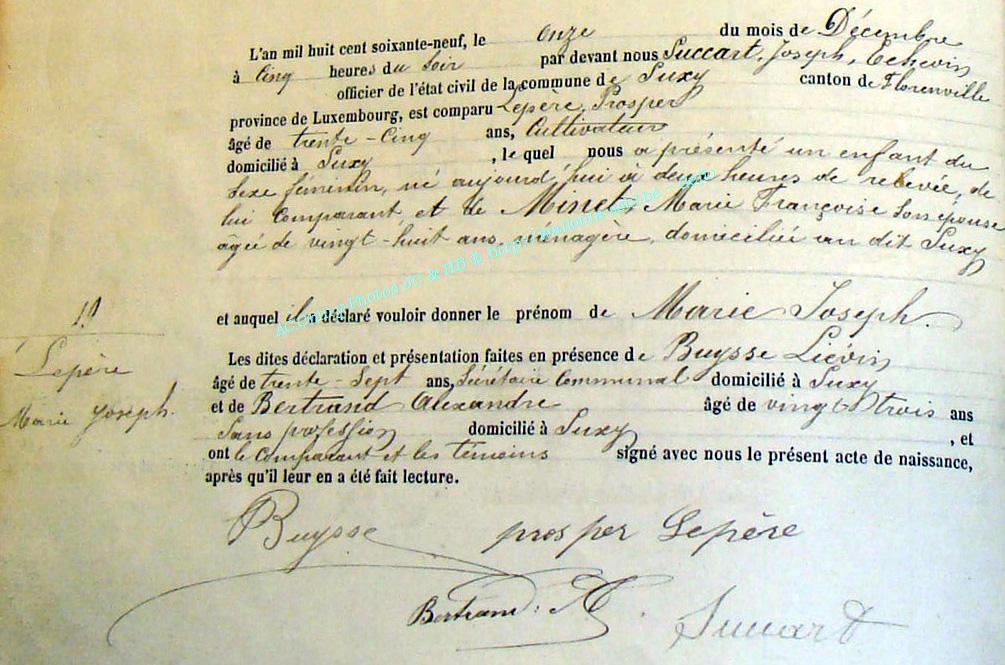 L'an mil huit cent soixante-neuf, le onze du mois de Décembre
à Cinq heures du soir par devant nous Succart, Joseph, Echevin
officier de l'état civil de la commune de Suxy canton de Florenville
province de Luxembourg, est comparu Lepère, Prosper
âgé de trente-Cinq ans, Cultivateur
domicilié à Suxy, le quel nous a présenté un enfant du
sexe féminin, né aujourd'hui à deux heures de relevée, de
lui Comparant et de Minet, Marie Françoise son épouse
âgée de vingt-huit ans, ménagère, domiciliée au dit Suxy
et auquel il a déclaré vouloir donner le prénom de Marie Joseph.
19
Lepère
Marie Joseph.
Les dites déclaration et présentation faites en présence de Buysse Liévin
âgé de trente-Sept ans, Sécrétaire Communal domicilié à Suxy
et de Bertrand Alexandre âgé de vingt trois ans
Sans profession domicilié à Suxy, et
ont le Comparant et les témoins signé avec nous le présent acte de naissance,
après qu'il leur en a été fait lecture.
Buysse prosper Lepère
Bertrand. A Succart